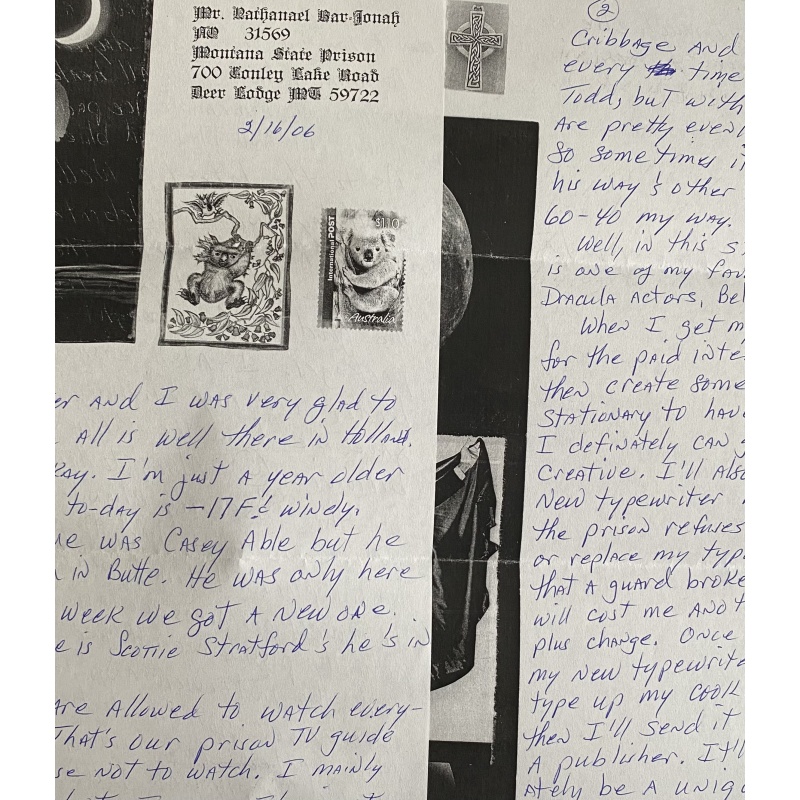 Mr. Nathanael Bar-Jonah
AO 31569
Montana State Prison
700 Conley Lake Road
Deer Lodge MT 59722
2/16/06
International POST
$1.10
Australia
er AND I WAS very glad to
All is well there in Holland.
I'm just a year older
to-day is -17F & windy.
WAS CASEY Able but he
in Butte. He WAS only here
week we got A New one.
e is Scottie Stratford & he's in
Are Allowed to watch every-
That's our prison TV guide
se not to watch. I mainly
2
Cribbage And
every time
Todd, but with
Are pretty even
So sometimes i
his way & other
60-40 my way.
Well, in this s
is one of my fav
Dracula Actors, Bel
When I get m
for the paid inte
then create some
Stationary to hav
I definately can g
Creative. I'll Also
New typewriter
the prison refuses
or replace my typ
that A guard broke
will cost me Anot
plus change. Once
my New typewrite
type up my cook
then I'll send it
A publisher. It'll
Ately be A uniqu